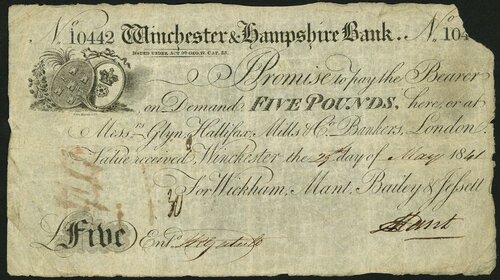 No 10442 Winchester & Hampshire Bank. No 104
ISSUED UNDER ACT 9º GEO. IV. CAP. 23.
I Promise to pay the Bearer
on Demand FIVE POUNDS, here, or at
Messrs Glyn, Hallifax, Mills & Co. Bankers, London.
Value received, Winchester the 29th day of May 1841
For Wickham, Mant, Bailey & Jessett
30
£ Five Entd.
Mant